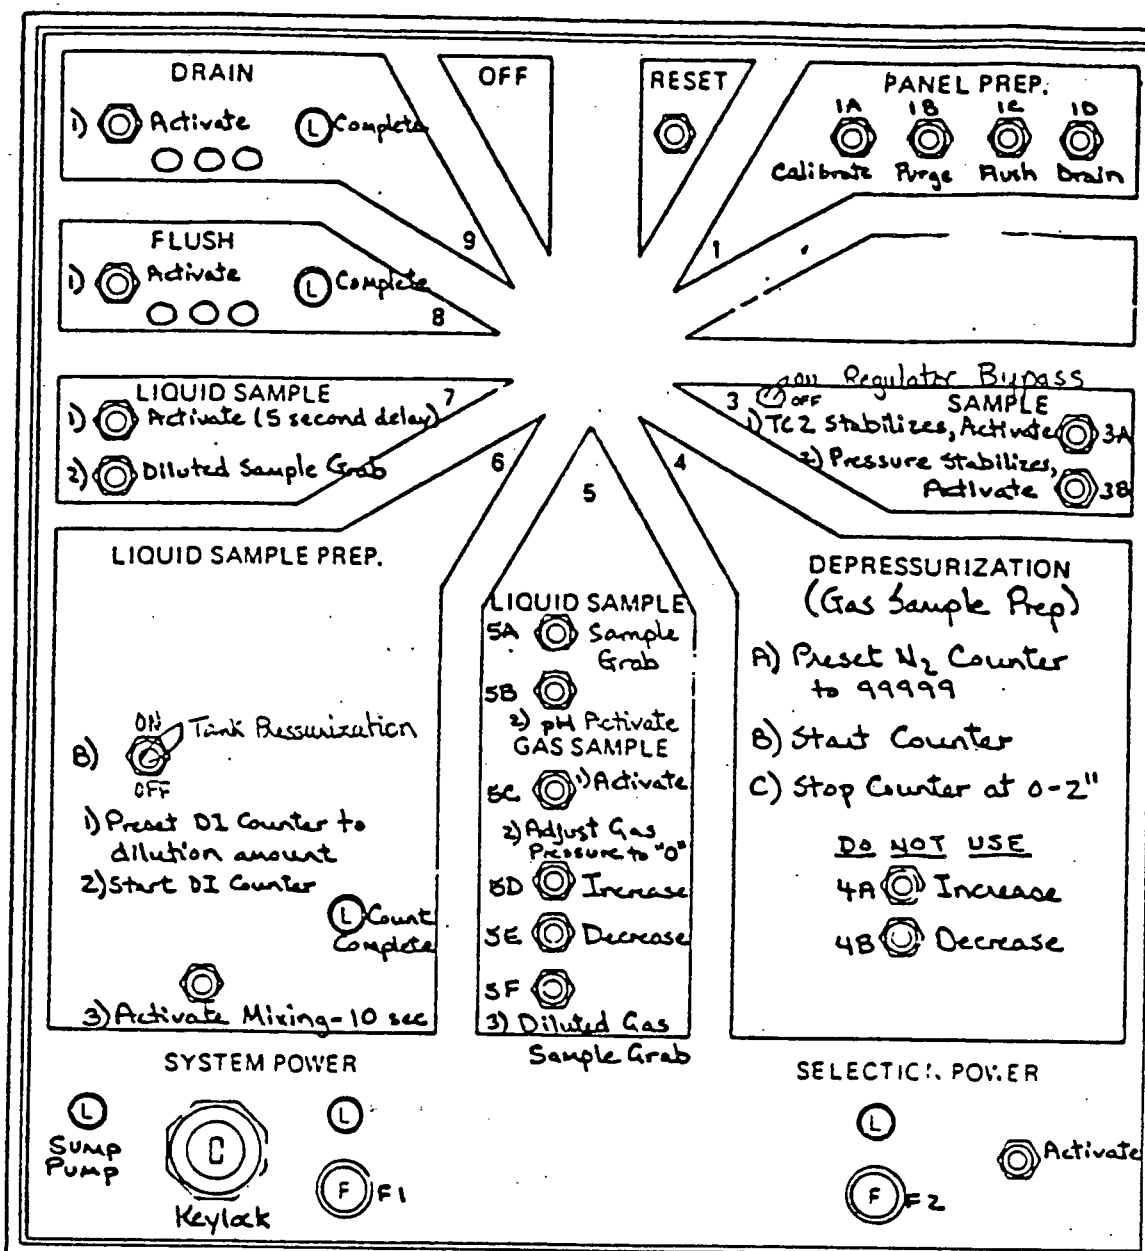 DRAIN
1) Activate
L Complete
9
OFF
RESET
PANEL PREP.
1A 1B 1C 1D
Calibrate Purge Flush Drain
1
FLUSH
1) Activate
L Complete
8
LIQUID SAMPLE
1) Activate (5 second delay)
2) Diluted Sample Grab
7
ON Regulator Bypass
OFF
3
SAMPLE
1) TC2 Stabilizes, Activate 3A
2) Pressure Stabilizes,
Activate 3B
6
LIQUID SAMPLE PREP.
B) ON Tank Pressurization
OFF
1) Preset DI Counter to
dilution amount
2) Start DI Counter
L Count
Complete
3) Activate Mixing-10 sec
5
LIQUID SAMPLE
5A Sample
Grab
5B
2) pH Activate
GAS SAMPLE
5C 1) Activate
2) Adjust Gas
Pressure to "0"
5D Increase
5E Decrease
5F
3) Diluted Gas
Sample Grab
4
DEPRESSURIZATION
(Gas Sample Prep)
A) Preset N2 Counter
to 99999
B) Start Counter
C) Stop Counter at 0-2"
DO NOT USE
4A Increase
4B Decrease
SYSTEM POWER
L
Sump
Pump
Keylock
L
F F1
SELECTION POWER
L
F F2
Activate